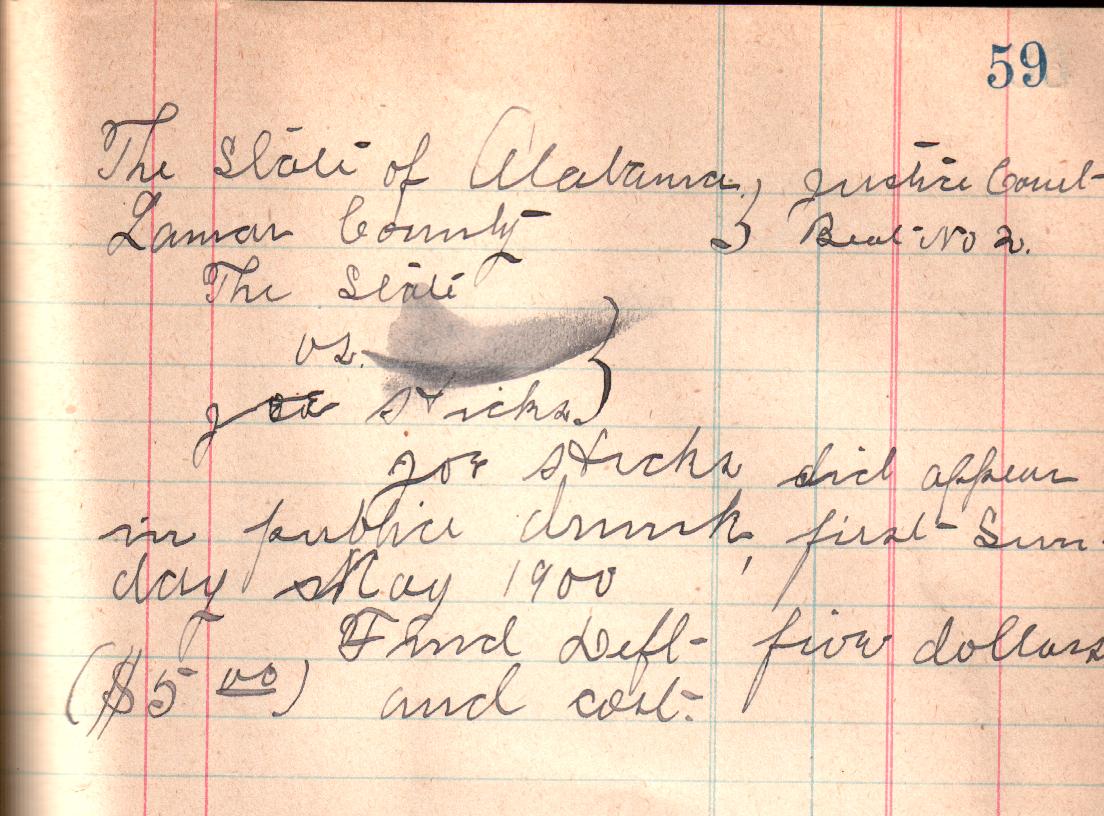 59
The State of Alabama, } Justice Court
Lamar County } Beat No 2.
The State
vs. }
Joe Sticks }
Joe Sticks did appear
in public drunk, first Sun-
day May 1900
Find Deft- five dollars
($5 00) and cost.